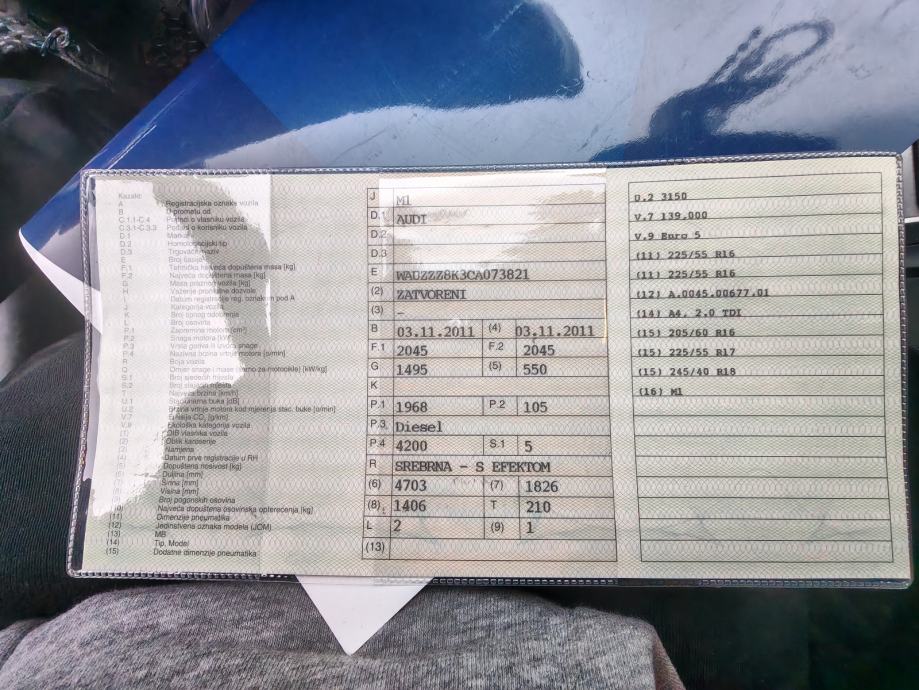 Kazalo:
A Registracijska oznaka vozila
B U prometu od
C.1.1-C.4 Podaci o vlasniku vozila
C.3.1-C.3.3 Podaci o korisniku vozila
D.1 Marka
D.2 Homologacijski tip
D.3 Trgovački naziv
E Broj šasije
F.1 Tehnička najveća dopuštena masa [kg]
F.2 Najveća dopuštena masa [kg]
G Masa praznog vozila [kg]
H Važenje prometne dozvole
I Datum registracije reg. oznakom pod A
J Kategorija vozila
K Broj tipnog odobrenja
L Broj osovina
P.1 Zapremina motora [cm³]
P.2 Snaga motora [kW]
P.3 Vrsta goriva ili izvora snage
P.4 Nazivna brzina vrtnje motora [o/min]
R Boja vozila
Q Omjer snage i mase (samo za motocikle) [kW/kg]
S.1 Broj sjedećih mjesta
S.2 Broj stajaćih mjesta
T Najveća brzina [km/h]
U.1 Stacionarna buka [dB]
U.2 Brzina vrtnje motora kod mjerenja stac. buke [o/min]
V.7 Emisija CO₂ [g/km]
V.9 Ekološka kategorija vozila
(1) OIB vlasnika vozila
(2) Oblik karoserije
(3) Namjena
(4) Datum prve registracije u RH
(5) Dopuštena nosivost [kg]
(6) Duljina [mm]
(7) Širina [mm]
(8) Visina [mm]
(9) Broj pogonskih osovina
(10) Najveća dopuštena osovinska opterećenja [kg]
(11) Dimenzije pneumatika
(12) Jedinstvena oznaka modela (JOM)
(13) MB
(14) Tip, Model
(15) Dodatne dimenzije pneumatika
J M1
D.1 AUDI
D.2
D.3
E WAUZZZ8K3CA073821
(2) ZATVORENI
(3) –
B 03.11.2011 (4) 03.11.2011
F.1 2045 F.2 2045
G 1495 (5) 550
K
P.1 1968 P.2 105
P.3 Diesel
P.4 4200 S.1 5
R SREBRNA - S EFEKTOM
(6) 4703 (7) 1826
(8) 1406 T 210
L 2 (9) 1
(13)
U.2 3150
V.7 139,000
V.9 Euro 5
(11) 225/55 R16
(11) 225/55 R16
(12) A.0045.00677.01
(14) A4, 2.0 TDI
(15) 205/60 R16
(15) 225/55 R17
(15) 245/40 R18
(16) M1